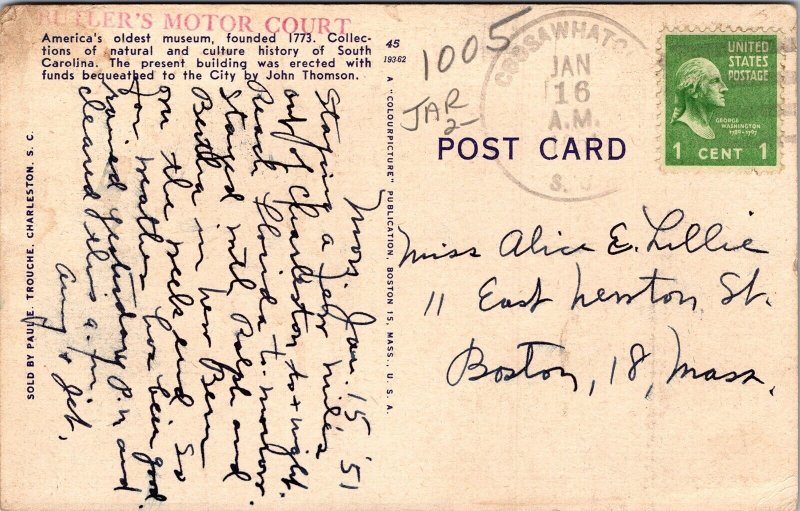 BUTLER'S MOTOR COURT
America's oldest museum, founded 1773. Collec-
tions of natural and culture history of South
Carolina. The present building was erected with
funds bequeathed to the City by John Thomson.
45
19362
1005
JAR
2-
COOSAWHATC
JAN
16
A.M.
S.
UNITED
STATES
POSTAGE
GEORGE
WASHINGTON
1789-1797
1 CENT 1
POST CARD
Mon. Jan. 15 '51
Staying a few miles
out of Charleston to-night.
Reach Florida to-morrow.
Stayed with Ralph and
Bertha in New Bern
over the week end. So
far weather has been good
rained yesterday P.M. and
cleared this a.m.
Amy & Jet.
Miss Alice E. Lillie
11 East Newton St.
Boston, 18, Mass.
SOLD BY PAUL E. TROUCHE, CHARLESTON, S. C.
A "COLOURPICTURE" PUBLICATION, BOSTON 15, MASS., U. S. A.